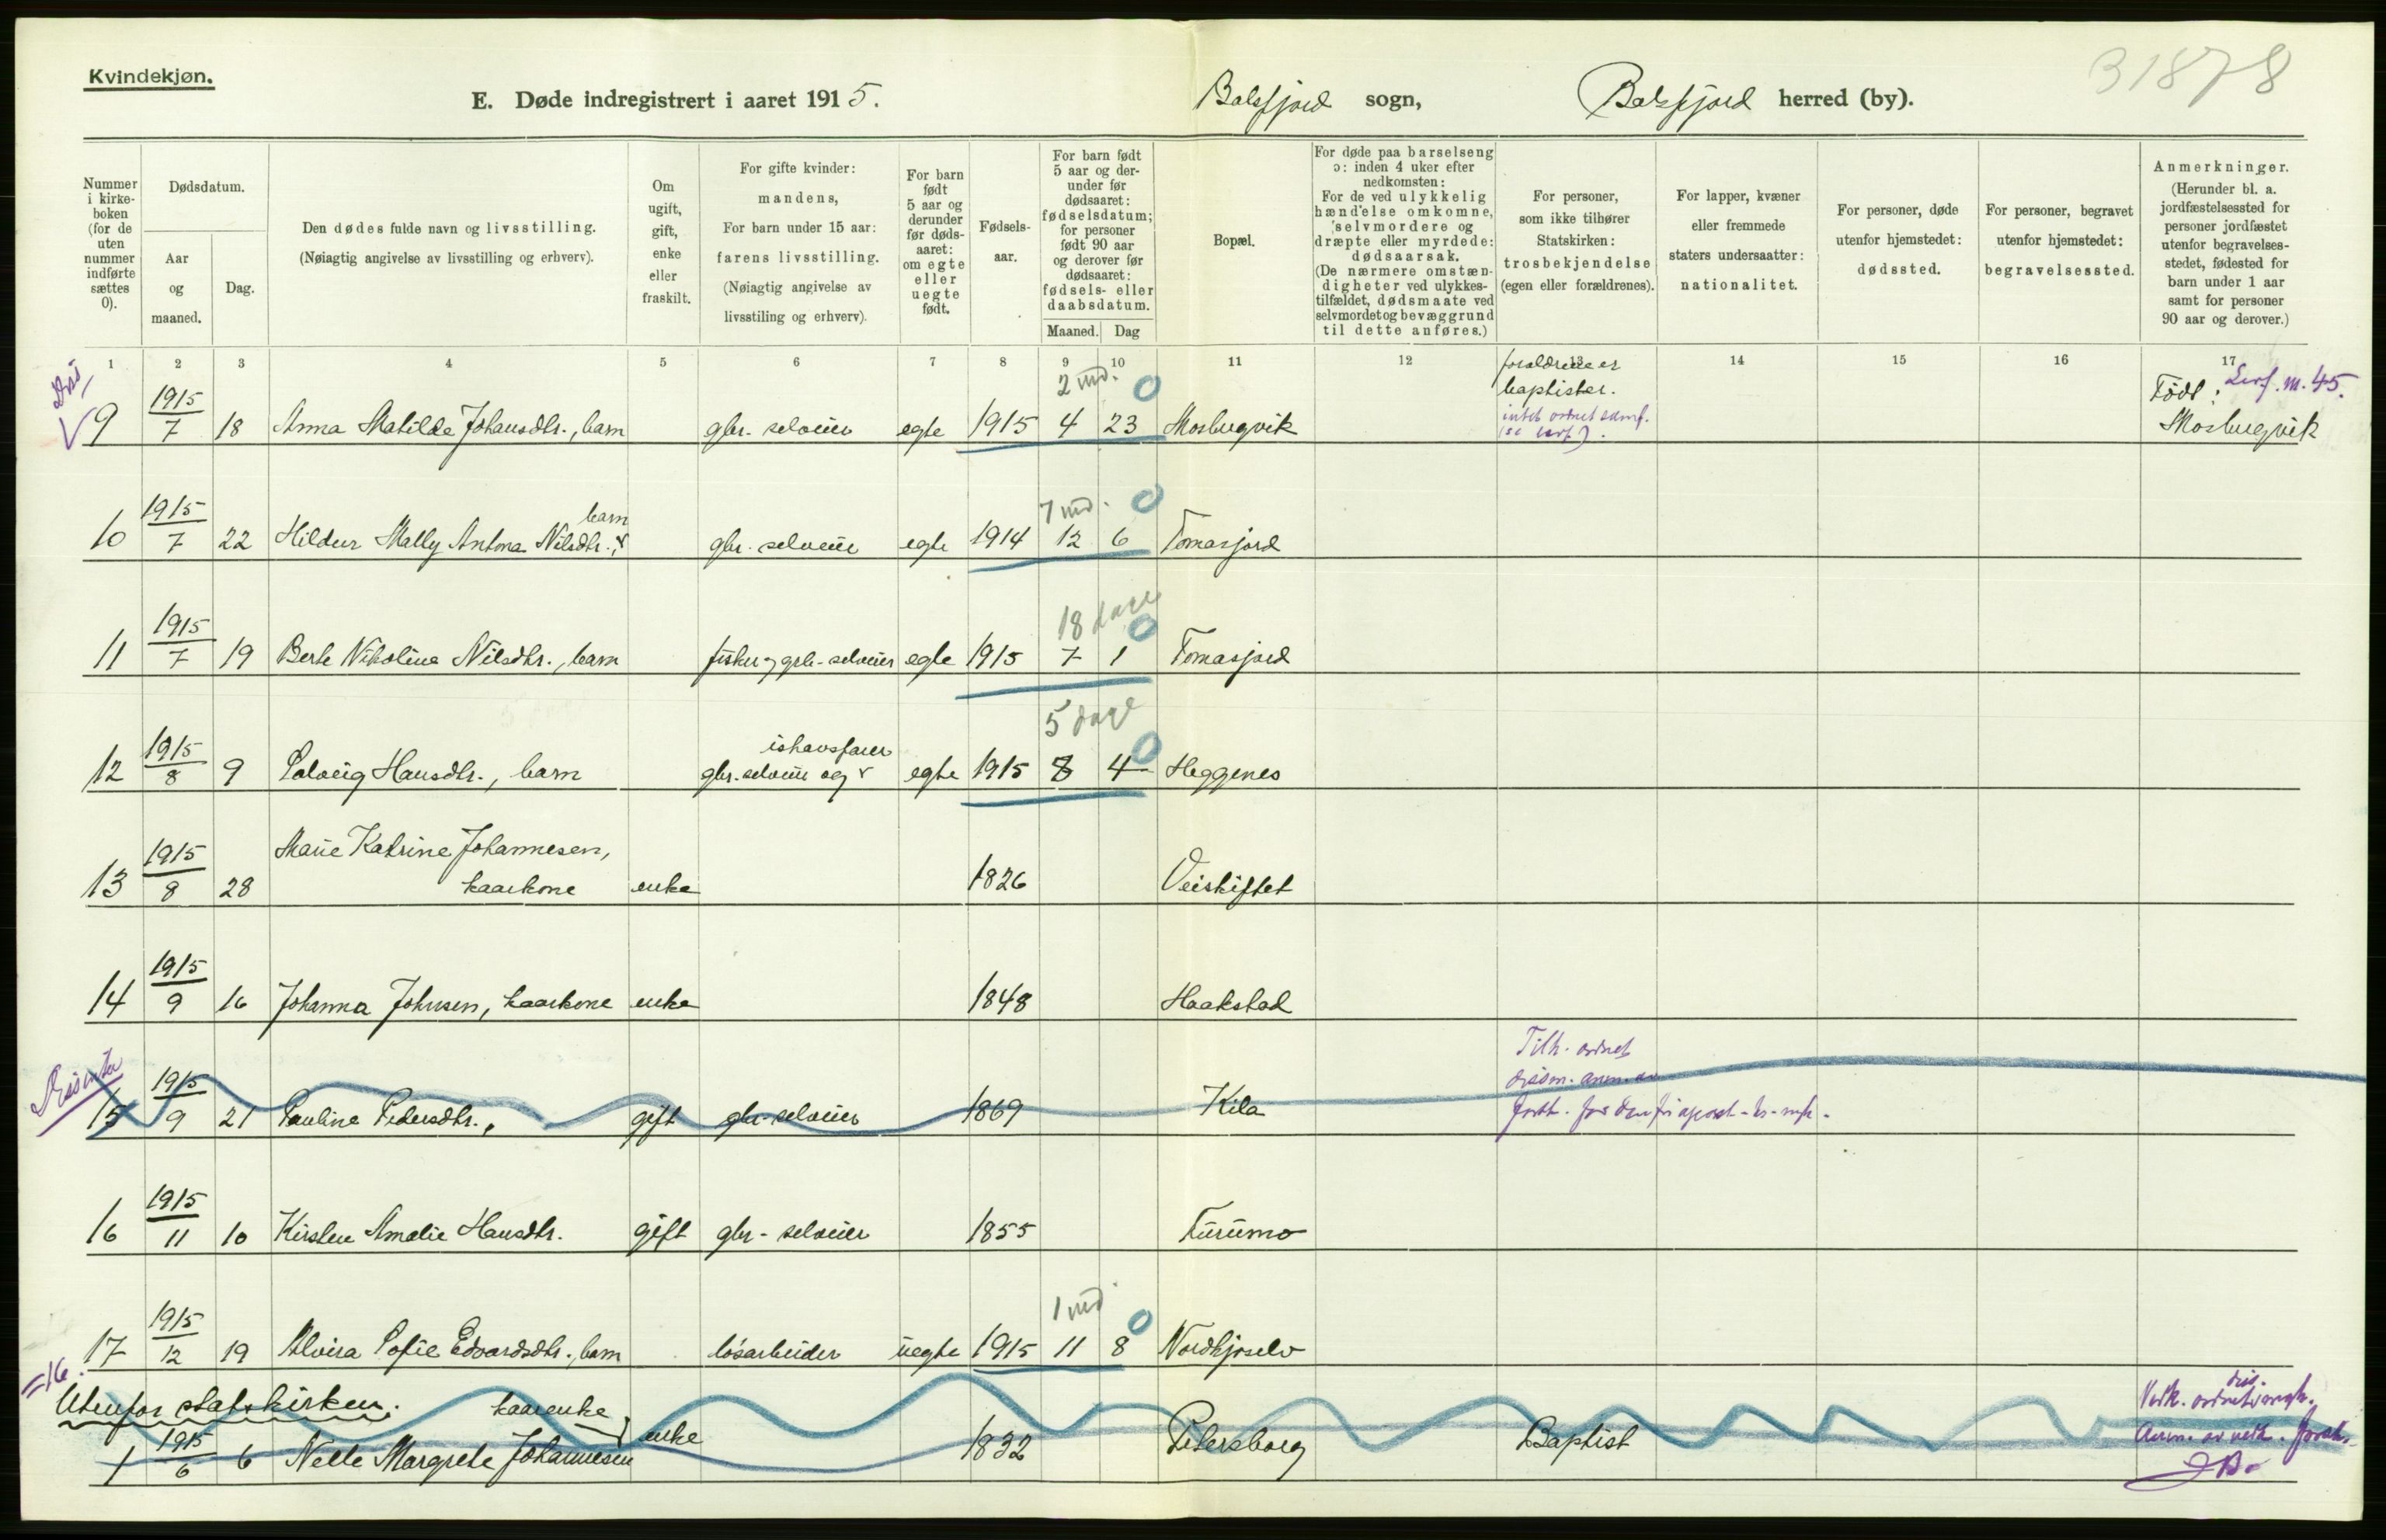 Kvindekjøn.
31878
E. Døde indregistrert i aaret 1915. Balsfjord sogn, Balsfjord herred (by).
Nummer i kirkeboken (for de uten nummer indførte sættes 0).
Dødsdatum.
Aar og maaned.
Dag.
Den dødes fulde navn og livsstilling.
(Nøiagtig angivelse av livsstilling og erhverv).
Om ugift, gift, enke eller fraskilt.
For gifte kvinder: mandens,
For barn under 15 aar: farens livsstilling.
(Nøiagtig angivelse av livsstiling og erhverv).
For barn født 5 aar og derunder før dødsaaret: om egte eller uegte født.
Fødselsaar.
For barn født 5 aar og derunder før dødsaaret: fødselsdatum; for personer født 90 aar og derover før dødsaaret: fødsels- eller daabsdatum.
Maaned. Dag
Bopæl.
For døde paa barselseng ɔ: inden 4 uker efter nedkomsten:
For de ved ulykkelig hændelse omkomne, selvmordere og dræpte eller myrdede: dødsaarsak.
(De nærmere omstændigheter ved ulykkestilfældet, dødsmaate ved selvmordet og bevæggrund til dette anføres.)
For personer, som ikke tilhører Statskirken: trosbekjendelse (egen eller forældrenes).
For lapper, kvæner eller fremmede staters undersaatter: nationalitet.
For personer, døde utenfor hjemstedet: dødssted.
For personer, begravet utenfor hjemstedet: begravelsessted.
Anmerkninger.
(Herunder bl. a. jordfæstelsessted for personer jordfæstet utenfor begravelsesstedet, fødested for barn under 1 aar samt for personer 90 aar og derover.)
1 2 3 4 5 6 7 8 9 10 11 12 13 14 15 16 17
2 md. 0 forældrene er baptister.
9 1915/7 18 Anna Matilde Johansdtr., barn gbr. selveier egte 1915 4 23 Mosbugvik Født: Mosbugvik
7 md. 0
10 1915/7 22 Hildur Mally Antona Nilsdtr., barn gbr. selveier egte 1914 12 6 Tomasjord
18 dage 0
11 1915/7 19 Berte Nikoline Nilsdtr., barn fisker og gbr-selveier egte 1915 7 1 Tomasjord
5 dage 0
12 1915/8 9 Solveig Hansdtr., barn gbr. selveier og ishavsfarer egte 1915 8 4 Heggenes
13 1915/8 28 Marie Katrine Johannesen, kaarkone enke 1826 Veiskiftet
14 1915/9 16 Johanna Johnsen, kaarkone enke 1848 Haakstad
Dissenter Tilh. ordnet
15 1915/9 21 Pauline Pedersdtr., gift gbr-selveier 1869 Kila
16 1915/11 10 Kirsten Amalie Hansdtr. gift gbr-selveier 1855 Furumo
1 md 0
17 1915/12 19 Alvira Sofie Edvardsdtr., barn løsarbeider uegte 1915 11 8 Nordkjoselv
=16.
Utenfor statskirken.
1 1915/6 6 Nelle Margrete Johannesen, kaarenke enke 1832 Petersborg Baptist